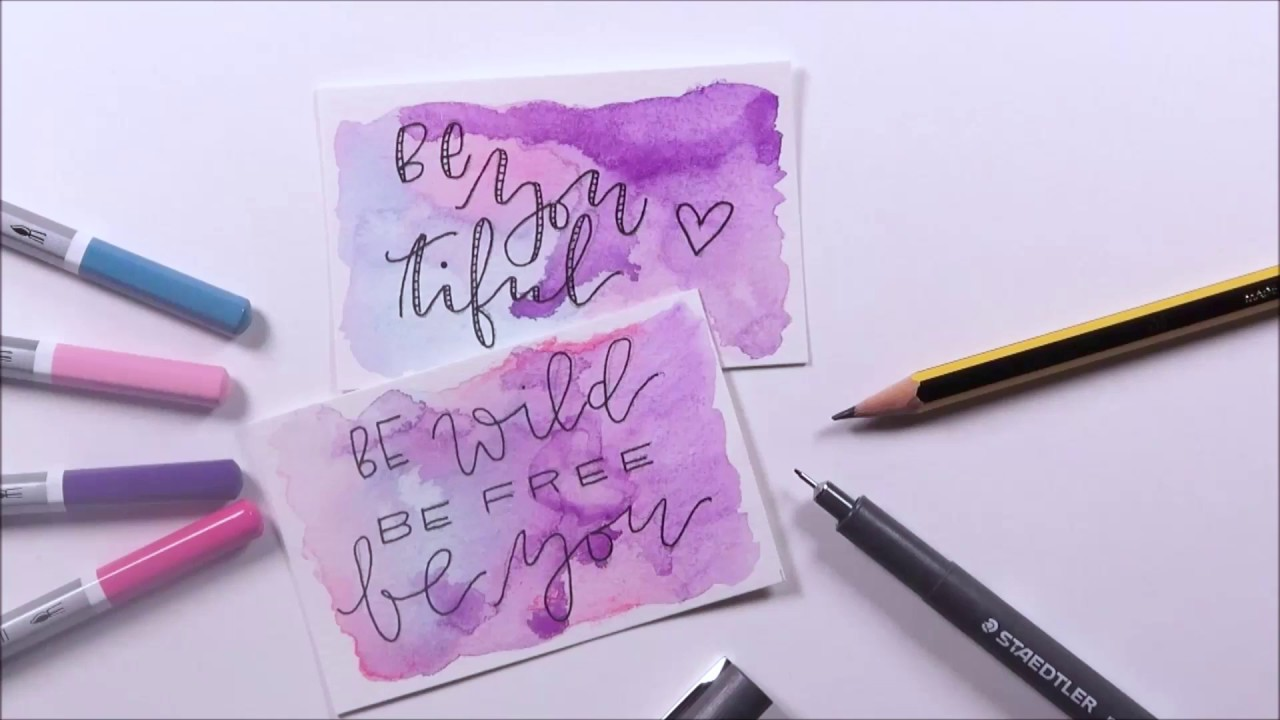 Be
you
tiful
BE wild
BE FREE
be you
STAEDTLER